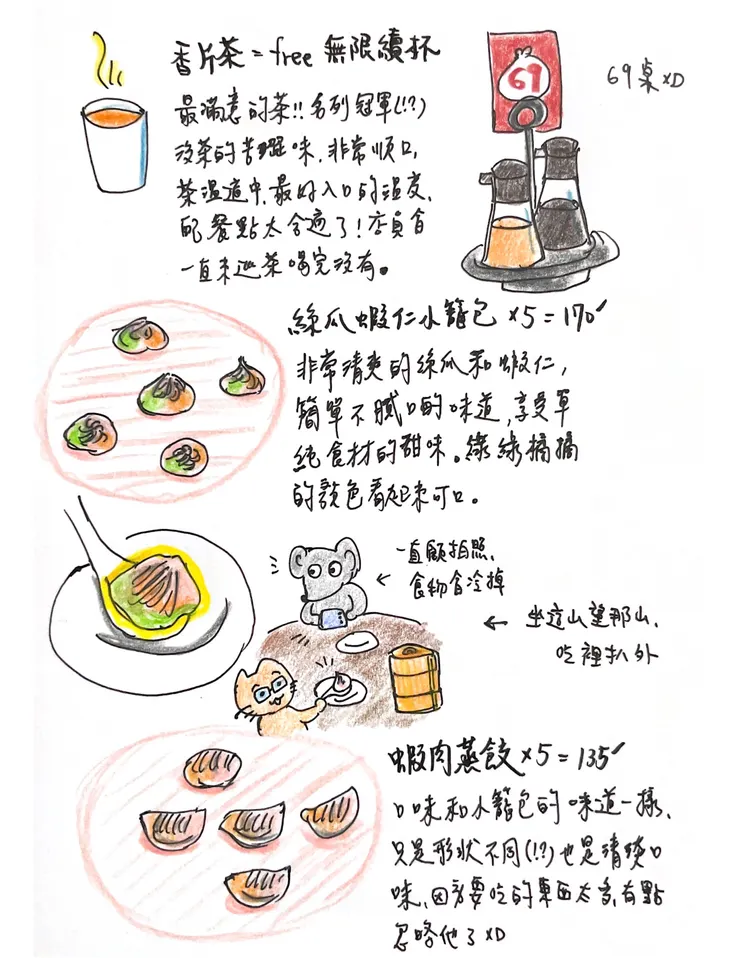 香片茶 = free 無限續杯
最滿意的茶!! 名列冠軍(!?)
沒茶的苦澀味,非常順口,
茶溫適中,最好入口的溫度,
配餐點太合適了!店員會
一直來巡茶喝完沒有。
69
69桌xD
絲瓜蝦仁小籠包 x5 = 170
非常清爽的絲瓜和蝦仁,
簡單不膩口的味道,享受單
純食材的甜味。綠綠橘橘
的顏色看起來可口。
一直顧拍照,
食物會冷掉
← 坐這山望那山,
吃裡扒外
蝦肉蒸餃 x5 = 135
口味和小籠包的味道一樣,
只是形狀不同(!?)也是清爽口
味,因為要吃的東西太多,有點
忽略他了XD